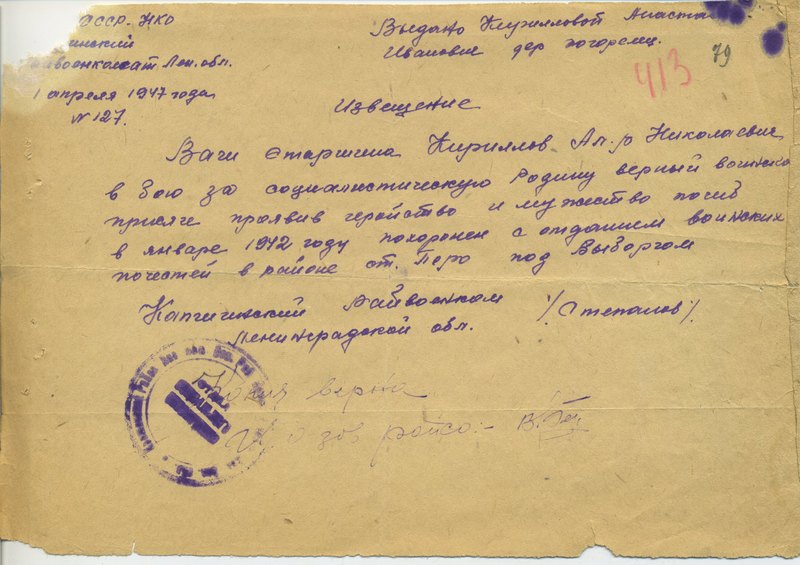 СССР. НКО
Выдано Кирилловой Анаста
инский
Ивановне дер погорелец.
райвоенкомат. Лен. обл.
413
79
1 апреля 1947 года
Извещение
№ 127.
Ваш Старшина Кириллов Ал-р Николаевич
в бою за социалистическую Родину верный воинской
присяге проявив геройство и мужество погиб
в январе 1942 году похоронен с отданием воинских
почестей в районе ст. Перо под Выборгом
Капшинский Райвоенком /Степанов/
Ленинградской обл.
Копия верна